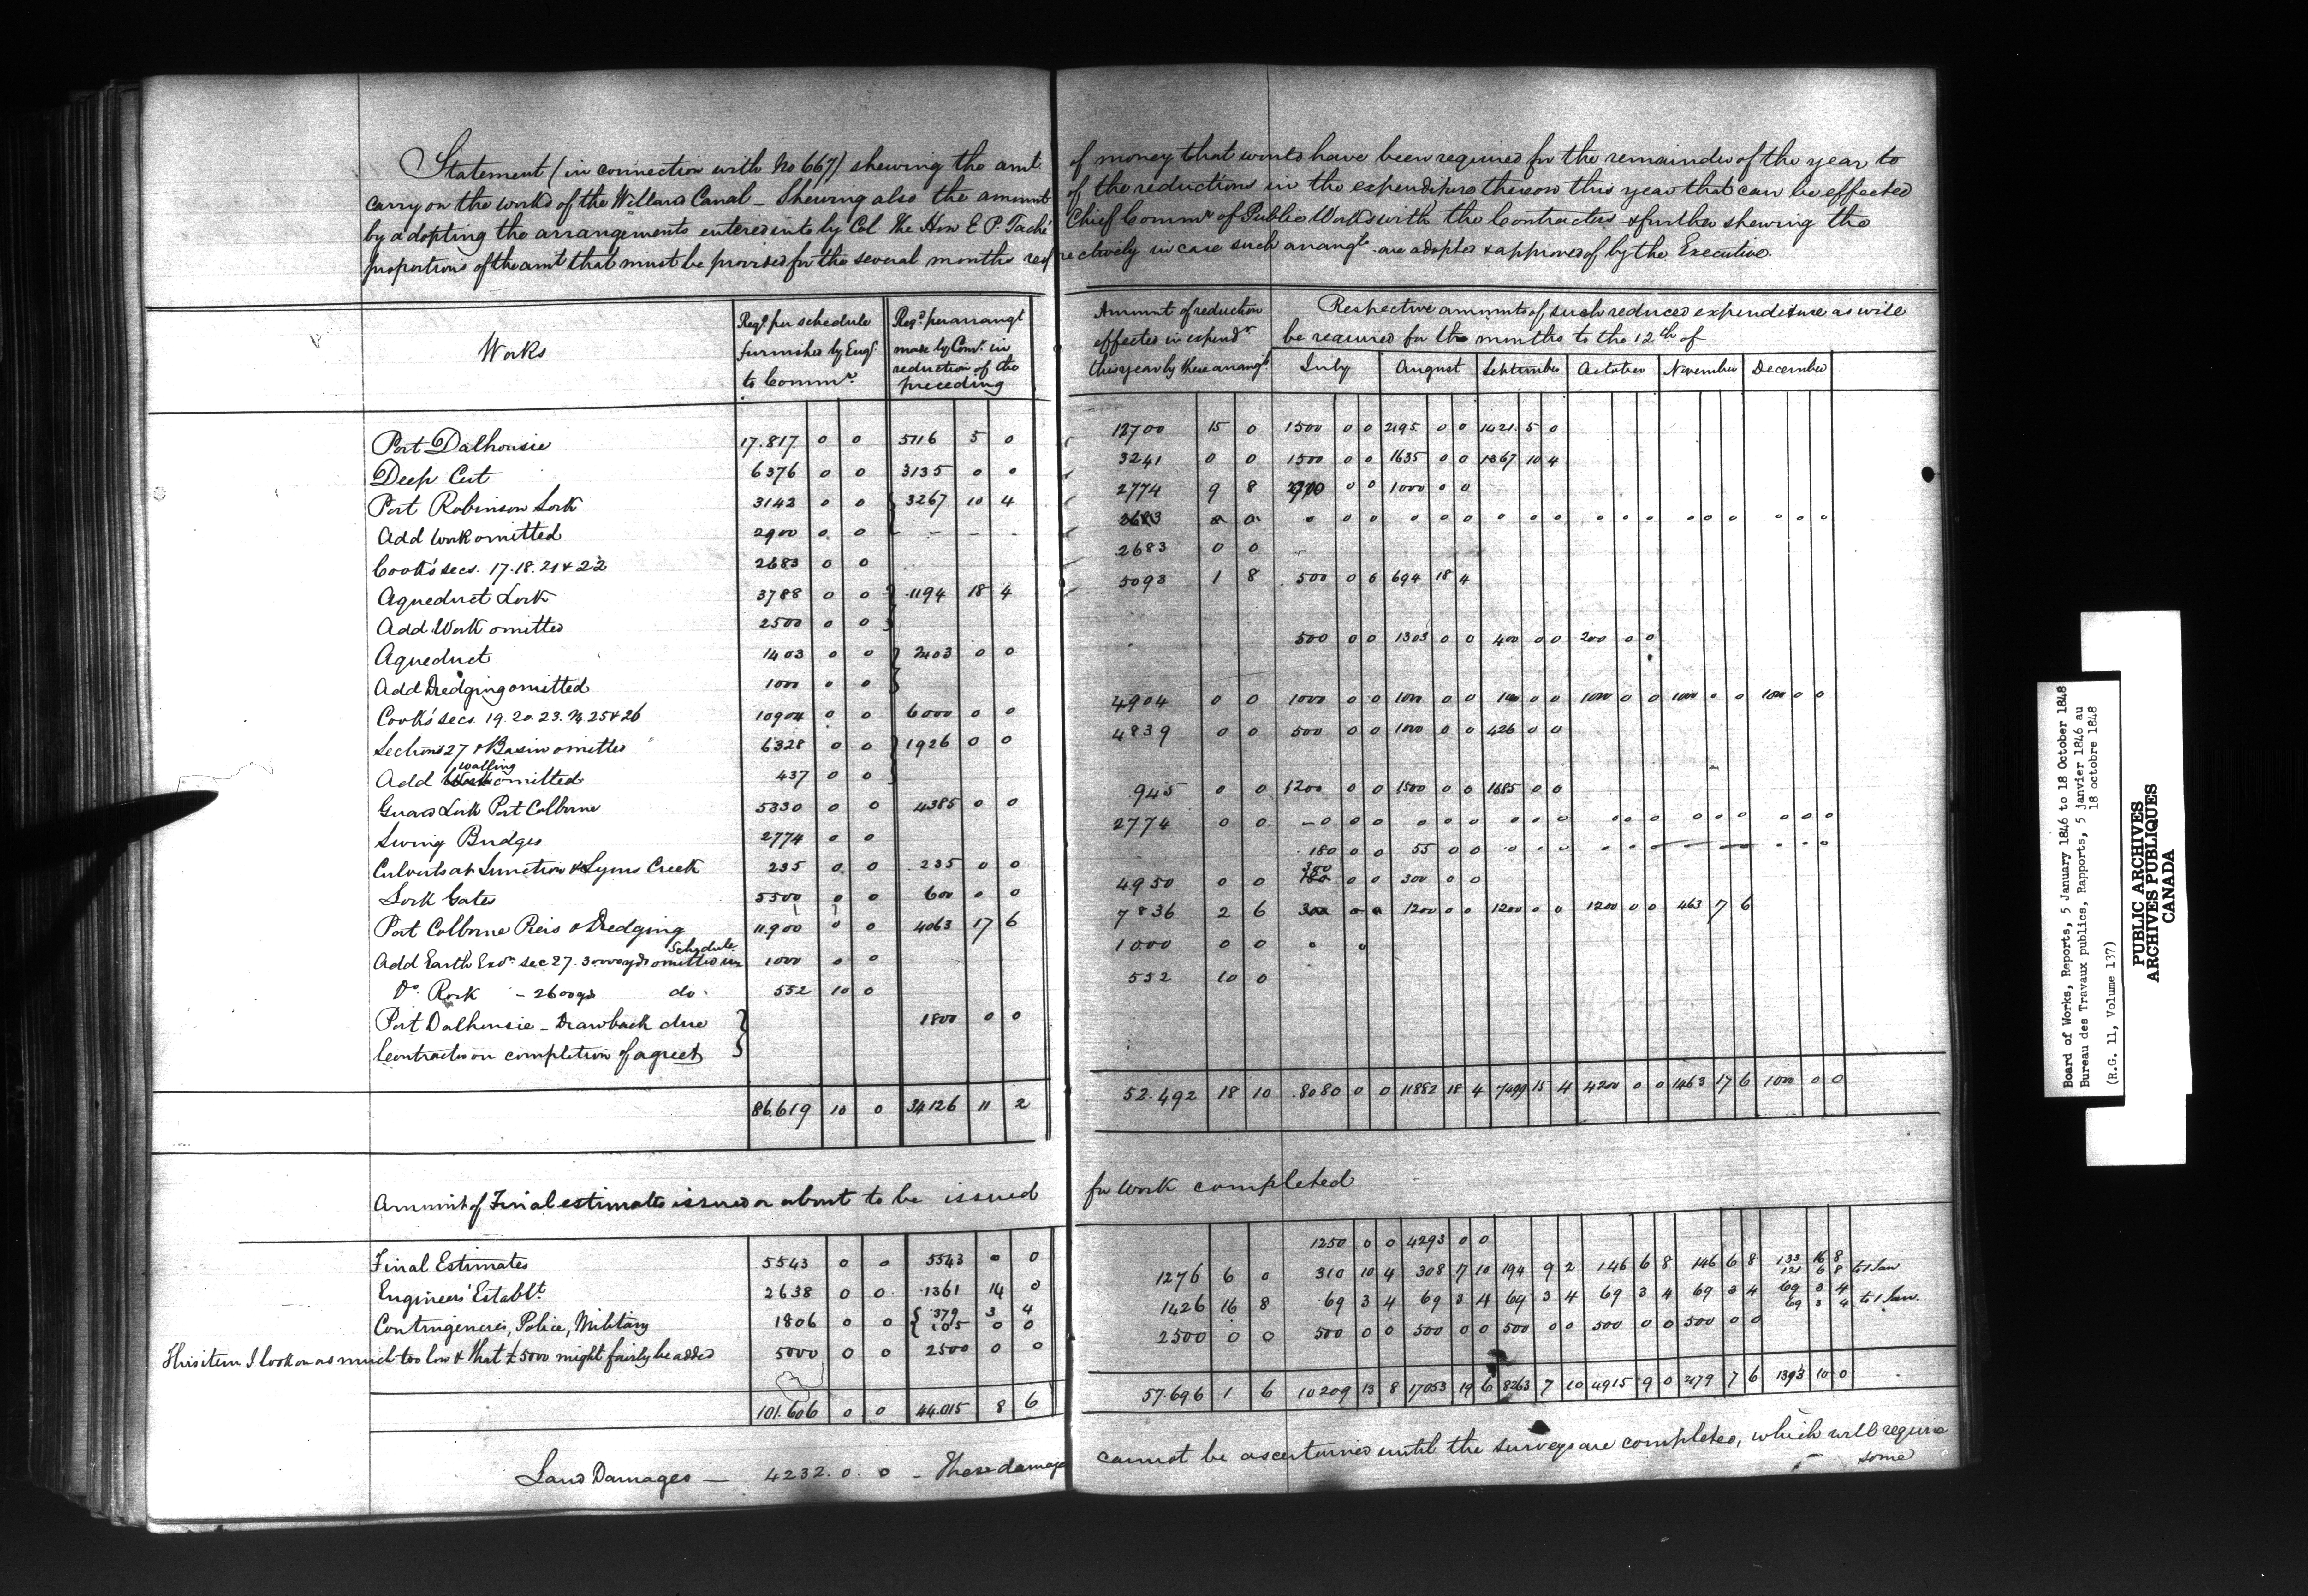 Statement (in connection with No 667) shewing the amt of money that would have been required for the remainder of the year to
carry on the works of the Welland Canal – Shewing also the amount of the reductions in the expenditure thereon this year that can be effected
by adopting the arrangements entered into by Col. The Hon E. P. Taché Chief Commr of Public Works with the Contractors & further shewing the
proportions of the amt that must be provided for the several months respectively in case such arrangts are adopted & approved of by the Executive.
Works | Reqd. per schedule furnished by Engr. to Commrs. | Reqd. per arrangt made by Comr. in reduction of the preceding | Amount of reduction effected in expendr this year by these arrangts | Respective amounts of such reduced expenditure as will be required for the months to the 12th of
July | August | September | October | November | December
Port Dalhousie 17.817 0 0 5116 5 0 12700 15 0 1500 0 0 2195 0 0 1421 5 0
Deep Cut 6376 0 0 3135 0 0 3241 0 0 1500 0 0 1635 0 0 1367 10 4
Port Robinson Lock 3142 0 0 3267 10 4 2774 9 8 0 0 1000 0 0
Add work omitted 2900 0 0 – – – 2683 0 0 0 0 0 0 0 0 0 0 0 0 0 0 0 0 0 0 0
Cook's secs. 17. 18. 21 & 22 2683 0 0 2683 0 0
Aqueduct Lock 3788 0 0 1194 18 4 5093 1 8 500 0 0 694 18 4
Add Work omitted 2500 0 0
Aqueduct 1403 0 0 2403 0 0 500 0 0 1303 0 0 400 0 0 200 0 0
Add Dredging omitted 1000 0 0
Cook's secs. 19. 20. 23. 24. 25 & 26 10904 0 0 6000 0 0 4904 0 0 1000 0 0 1000 0 0 1000 0 0 1000 0 0 1000 0 0 1000 0 0
Sections 27 & Basin omitted 6328 0 0 1926 0 0 4839 0 0 500 0 0 1000 0 0 426 0 0
Add Work walling omitted 437 0 0
Guard Lock Port Colborne 5330 0 0 4385 0 0 945 0 0 1200 0 0 1500 0 0 1685 0 0
Swing Bridges 2774 0 0 2774 0 0 – 0 0 0 0 0 0 0 0 0 0 0 0 0 0 0 0 0 0
Culverts at Junction & Lyons Creek 235 0 0 235 0 0 180 0 0 55 0 0
Lock Gates 5500 0 0 600 0 0 4950 0 0 300 0 0 300 0 0
Port Colborne Piers & Dredging 11.900 0 0 4063 17 6 7836 2 6 1200 0 0 1200 0 0 1200 0 0 463 7 6
Add Earth Exn. sec 27. 30000 yds omitted in Schedule 1000 0 0 1000 0 0 0 0
Do. Rock – 2600 yds do. 552 10 0 552 10 0
Port Dalhousie – Drawback due 1800 0 0
Contractor on completion of agreet
86.619 10 0 34126 11 2 52.492 18 10 8080 0 0 11882 18 4 7499 15 4 4200 0 0 1463 17 6 1000 0 0
Amount of Final estimates issued or about to be issued for work completed
Final Estimates 5543 0 0 5543 0 0 1250 0 0 4293 0 0
Engineers' Establt. 2638 0 0 1361 14 0 1276 6 0 310 10 4 308 7 10 194 9 2 146 6 8 146 6 8 133 16 8 121 6 8 to 1 Jan
Contingencies, Police, Military 1806 0 0 379 3 4 105 0 0 1426 16 8 69 3 4 69 3 4 69 3 4 69 3 4 69 3 4 69 3 4 69 3 4 to 1 Jan.
This item I look on as much too low & that £5000 might fairly be added 5000 0 0 2500 0 0 2500 0 0 500 0 0 500 0 0 500 0 0 500 0 0 500 0 0
101.606 0 0 44.015 8 6 57.696 1 6 10209 13 8 17053 19 6 8263 7 10 4915 9 0 2179 7 6 1393 10 0
Land Damages – 4232. 0. 0 – These damages cannot be ascertained until the surveys are completed, which will require
some
Board of Works, Reports, 5 January 1846 to 18 October 1848
Bureau des Travaux publics, Rapports, 5 janvier 1846 au
18 octobre 1848
(R.G. 11, Volume 137)
PUBLIC ARCHIVES
ARCHIVES PUBLIQUES
CANADA